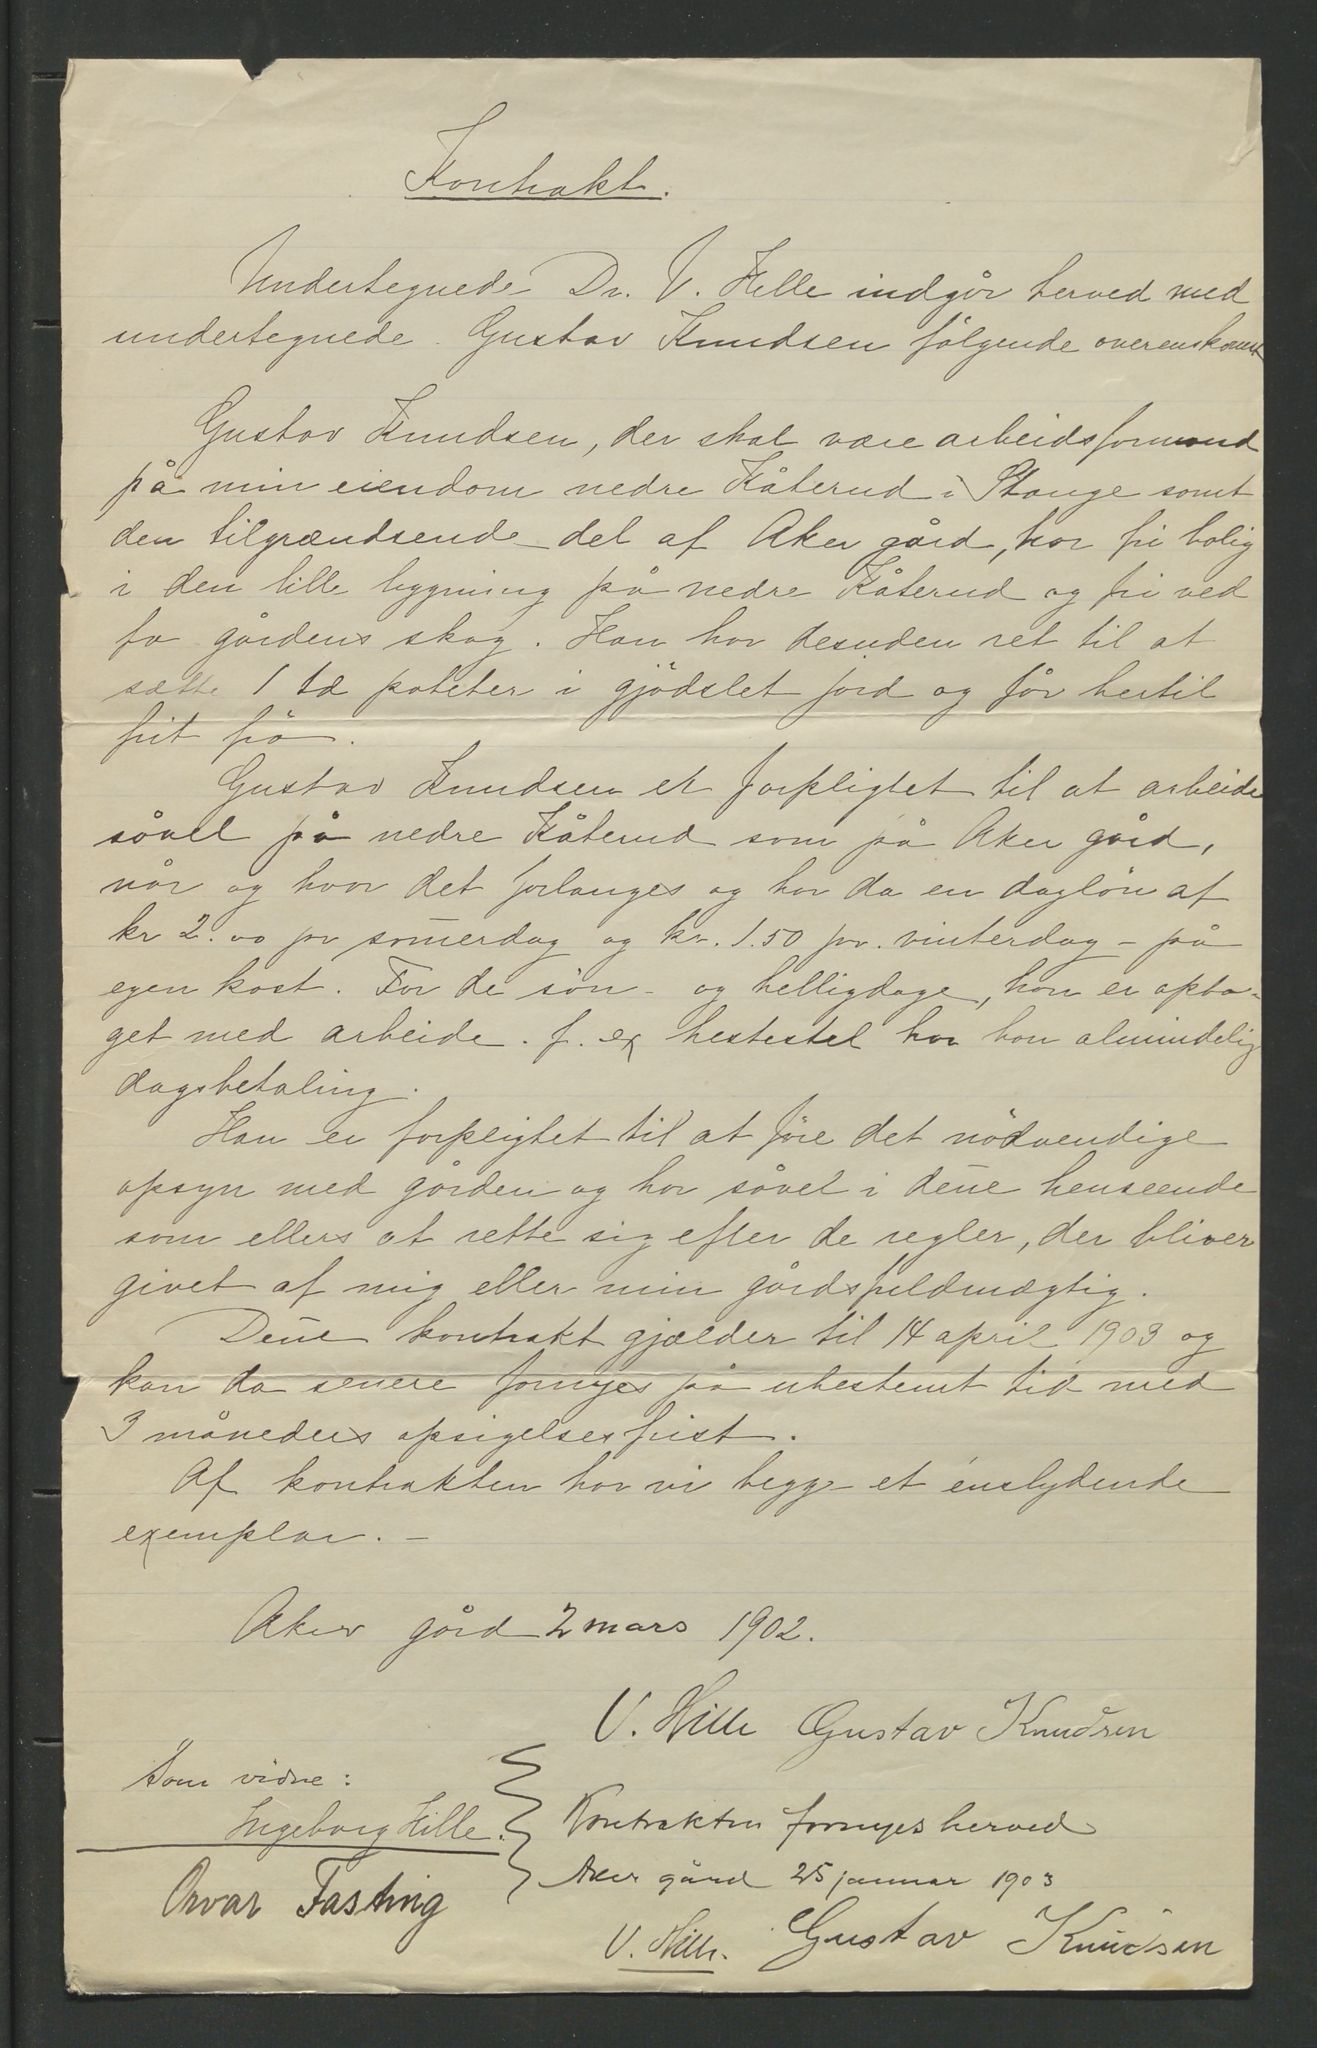 Kontrakt.
Undertegnede Dr. V. Hille indgår herved med
undertegnede Gustav Knudsen følgende overenskomst
Gustav Knudsen, der skal være arbeidsformand
på min eiendom nedre Kåterud i Stange samt
den tilgrændsende del af Aker gård, har fri bolig
i den lille bygning på nedre Kåterud og fri ved
fra gårdens skog. Han har desuden ret til at
sætte 1 td poteter i gjødslet jord og får hertil
frit frø.
Gustav Knudsen er forpligtet til at arbeide
såvel på nedre Kåterud som på Aker gård,
når og hvor det forlanges og har da en dagløn af
kr 2.00 pr som̄erdag og kr. 1.50 pr. vinterdag – på
egen kost. For de søn- og helligdage, han er opta-
get med arbeide f. ex hestestel har han almindelig
dagsbetaling.
Han er forpligtet til at føre det nødvendige
opsyn med gården og har såvel i den̄e henseende
som ellers at rette sig efter de regler, der bliver
givet af mig eller min gårdsfuldmægtig.
Den̄e kontrakt gjælder til 14 april 1903 og
kan da senere fornyes på ubestemt tid med
3 måneders opsigelsesfrist.
Af kontrakten har vi begge et énslydende
exemplar. –
Aker gård 2 mars 1902.
V. Hille Gustav Knudsen
Som vidne:
Ingeborg Hille.
Orvar Fasting
Kontrakten fornyes herved
Aker gård 25 januar 1903
V. Hille. Gustav Knudsen